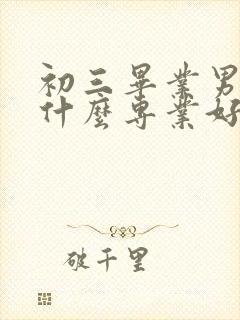 初三畢業男
什麼專業好
破千里